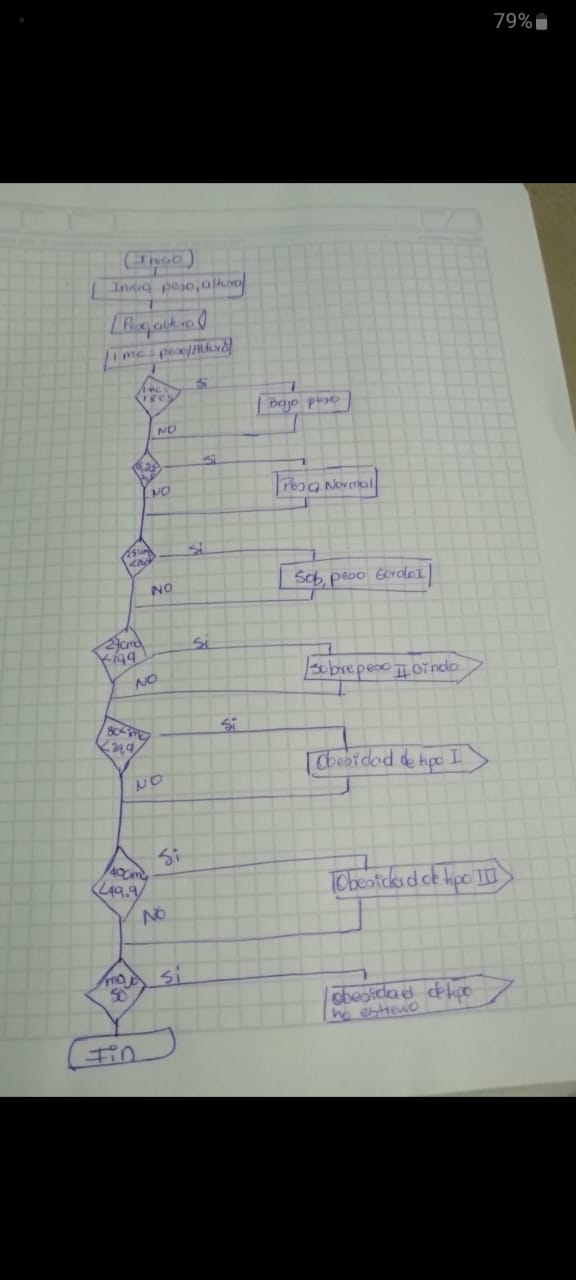 79%
Inicio
Inicia peso, altura
Peso, altura
imc = peso/Altura
Si
Bajo peso
NO
Si
Peso Normal
NO
Si
Sob, peso Gordo I
NO
27<imc
<29,9
Si
Sobrepeso II
NO
30<imc
Si
Obesidad de tipo I
NO
40<imc
<49.9
Si
Obesidad de tipo III
NO
50
Si
Obesidad de tipo
Fin